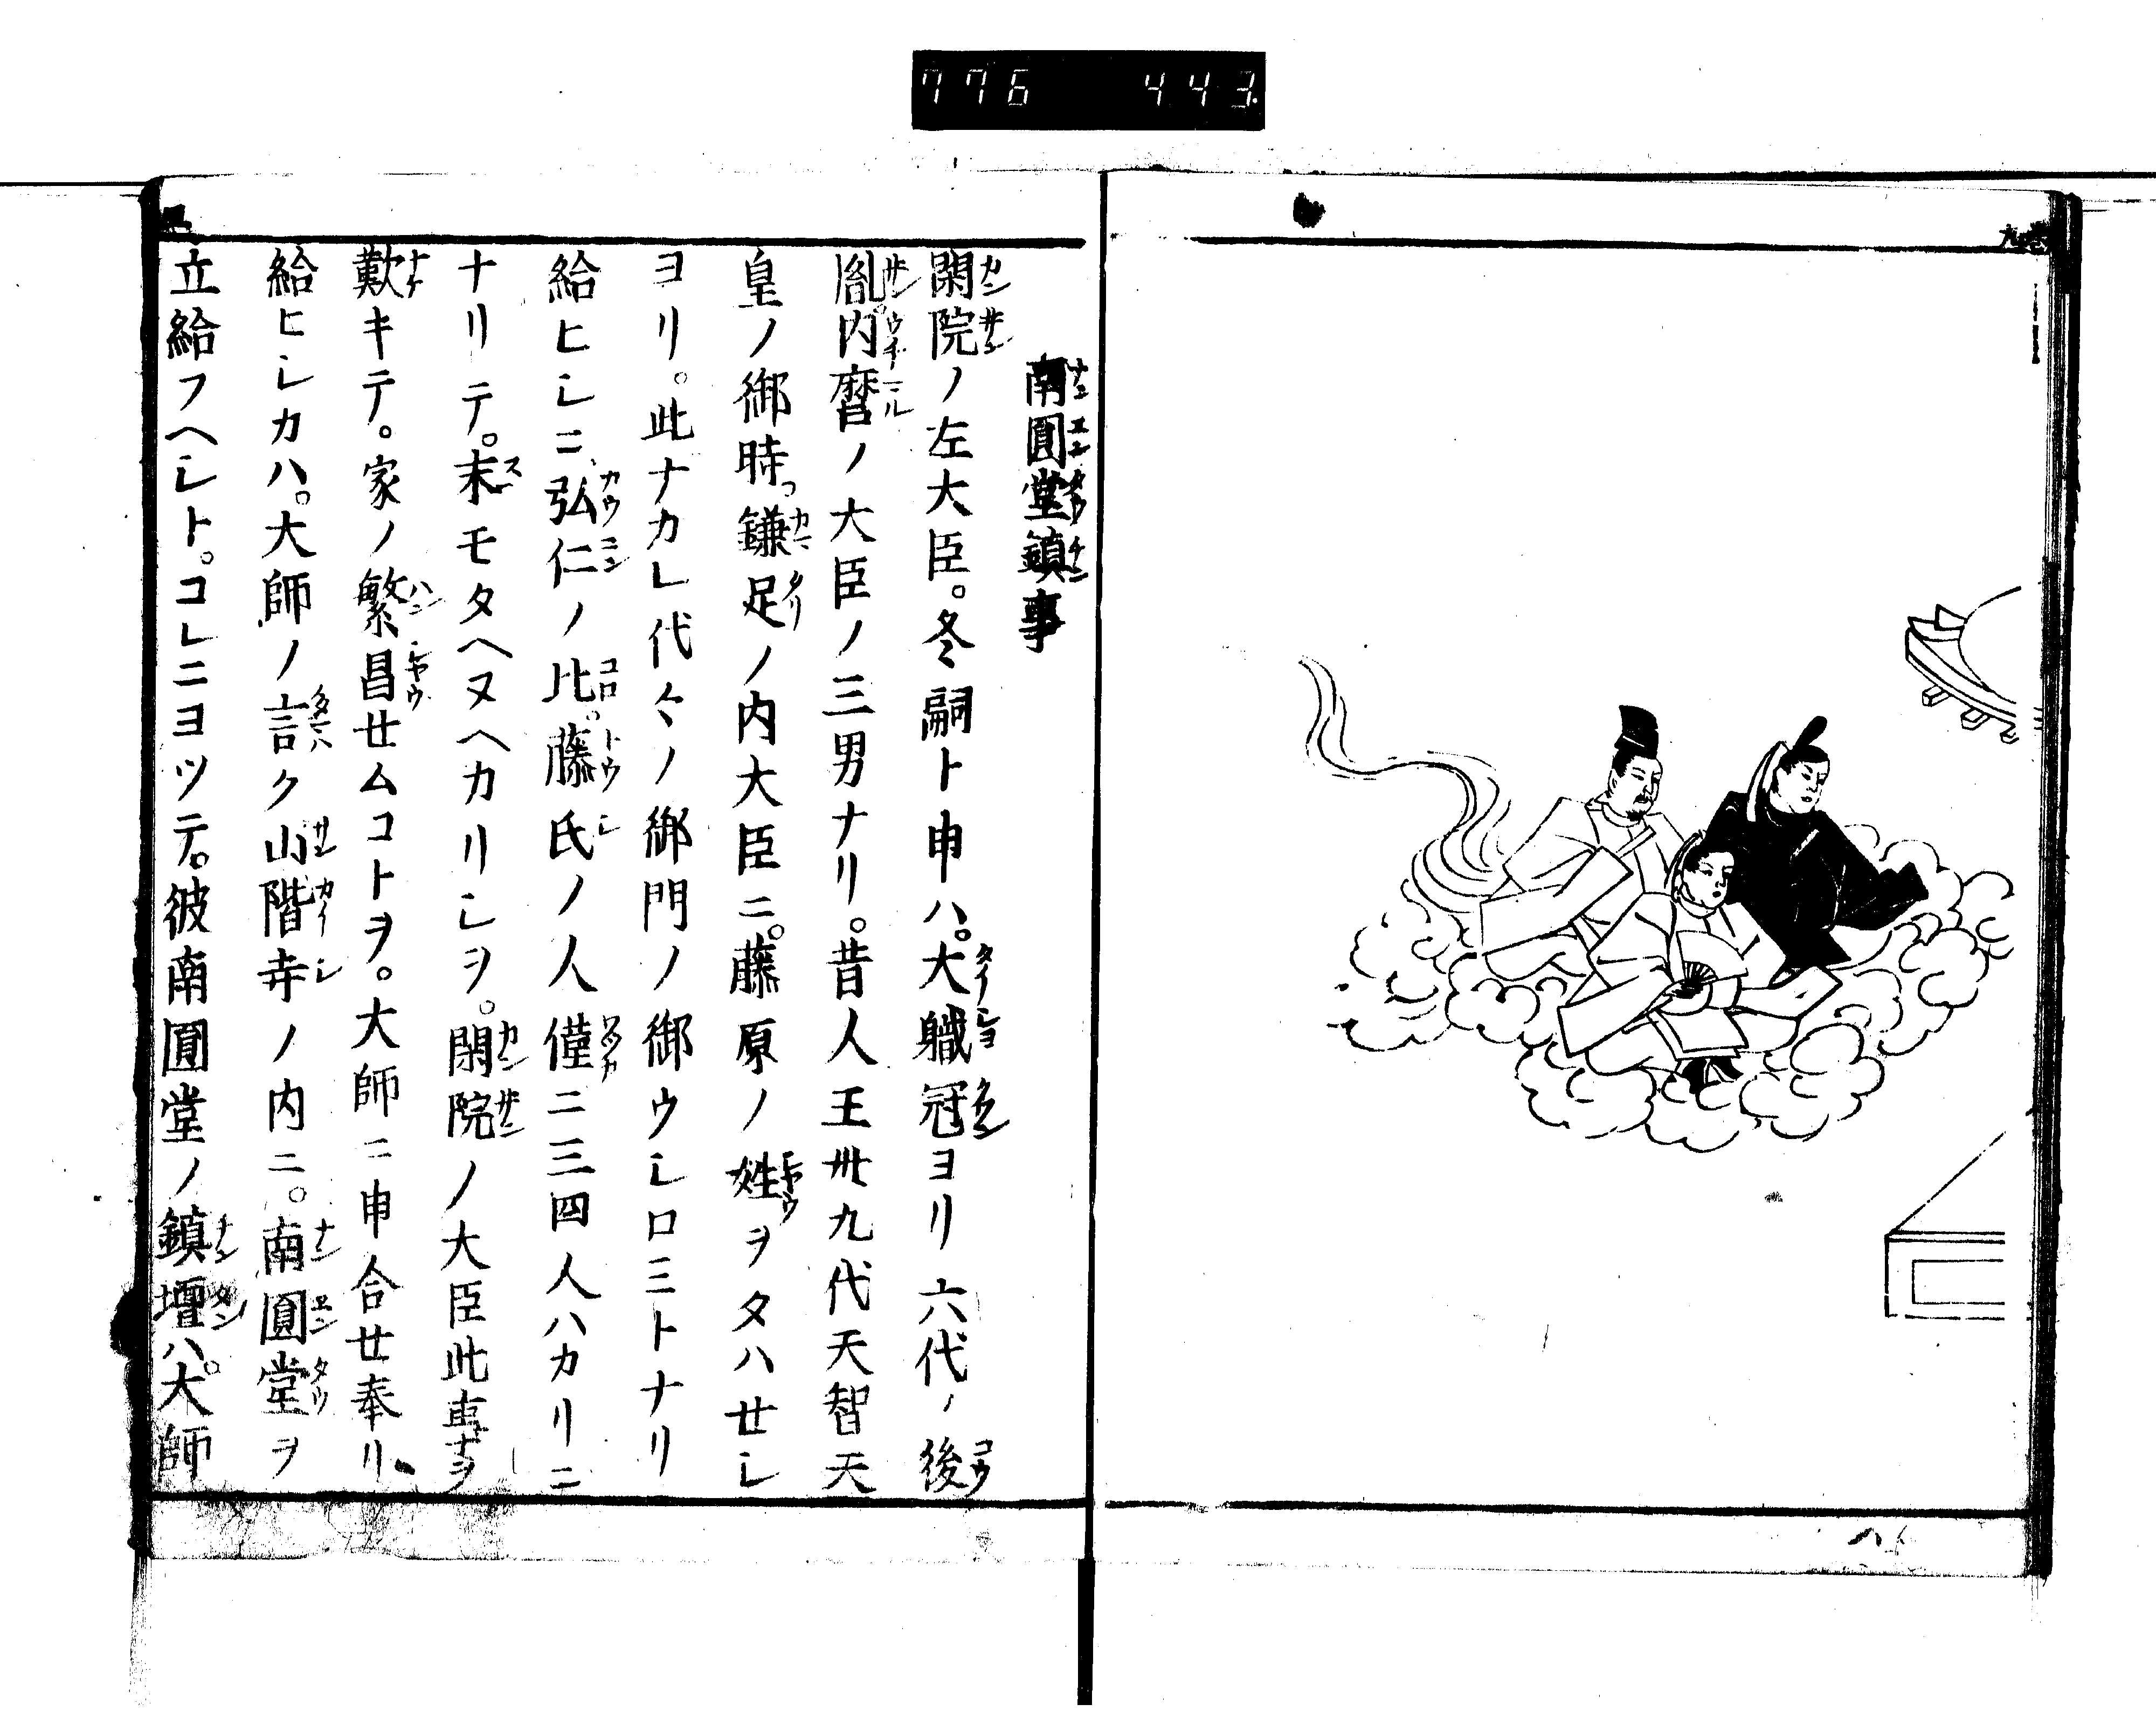 776 443
南圓堂鎮事
閑院ノ左大臣。冬嗣ト申ハ。大職冠ヨリ六代ノ後
胤。内麿ノ大臣ノ三男ナリ。昔人王卅九代天智天
皇ノ御時。鎌足ノ内大臣ニ。藤原ノ姓ヲタハセシ
ヨリ。此ナカレ代々ノ御門ノ御ウシロミトナリ
給ヒシニ。弘仁ノ比。藤氏ノ人僅ニ三四人ハカリニ
ナリテ。末モタヘヌヘカリシヲ。閑院ノ大臣此事ヲ
歎キテ。家ノ繁昌せムコトヲ。大師ニ申合せ奉リ
給ヒシカハ。大師ノ言ク山階寺ノ内ニ。南圓堂ヲ
立給フヘシト。コレニヨツテ。彼南圓堂ノ鎮壇ハ。大師